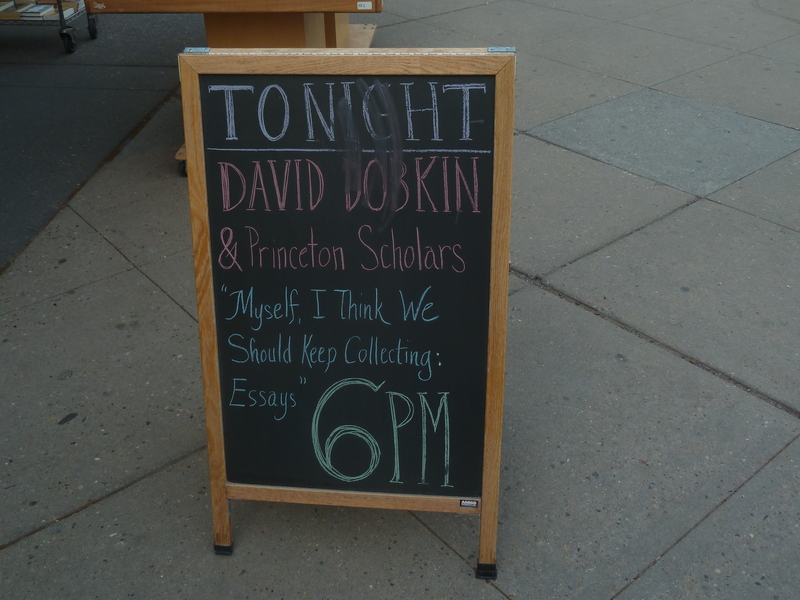 TONIGHT
DAVID DOBKIN
& Princeton Scholars
"Myself, I Think We
Should Keep Collecting:
Essays"
6PM